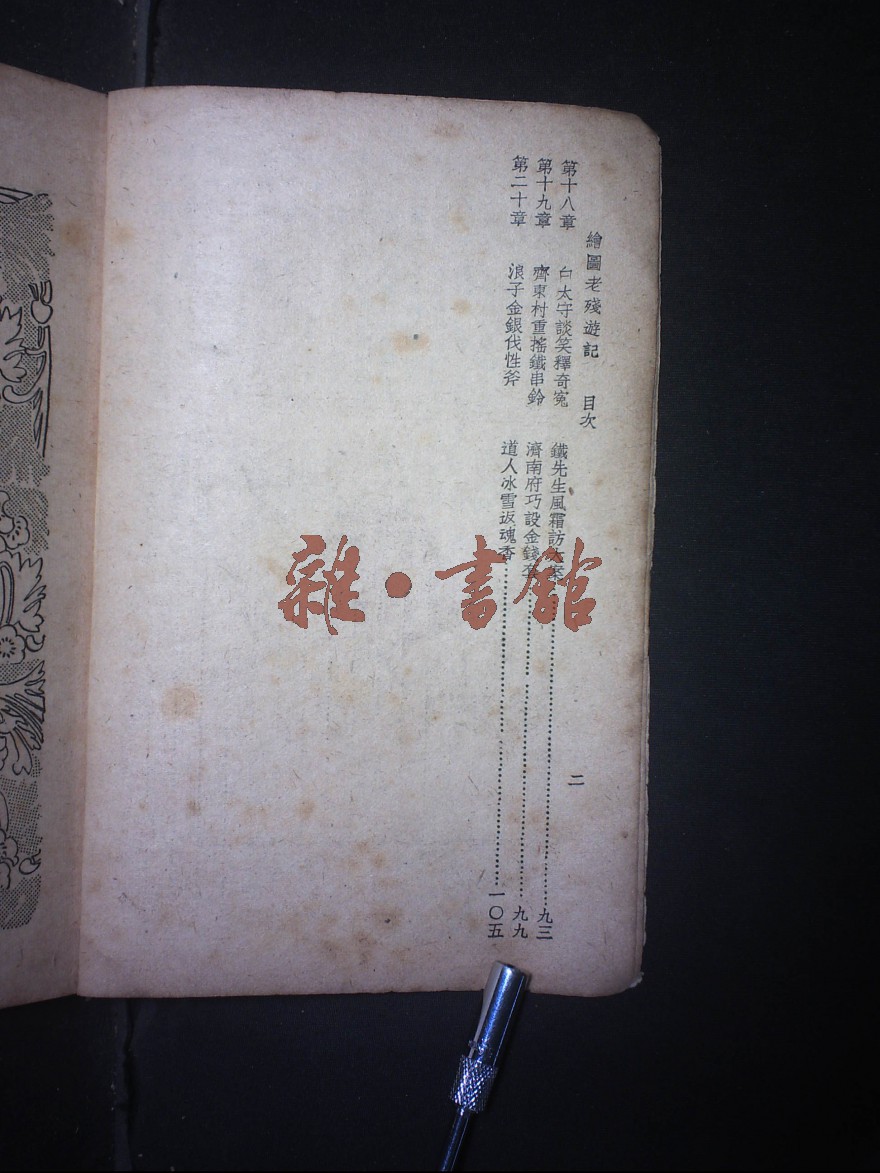 繪圖老殘遊記 目次 二
第十八章 白太守談笑釋奇寃 鐵先生風霜訪大案……九三
第十九章 齊東村重搖鐵串鈴 濟南府巧設金錢套……九九
第二十章 浪子金銀伐性斧 道人冰雪返魂香……一〇五
雜·書館